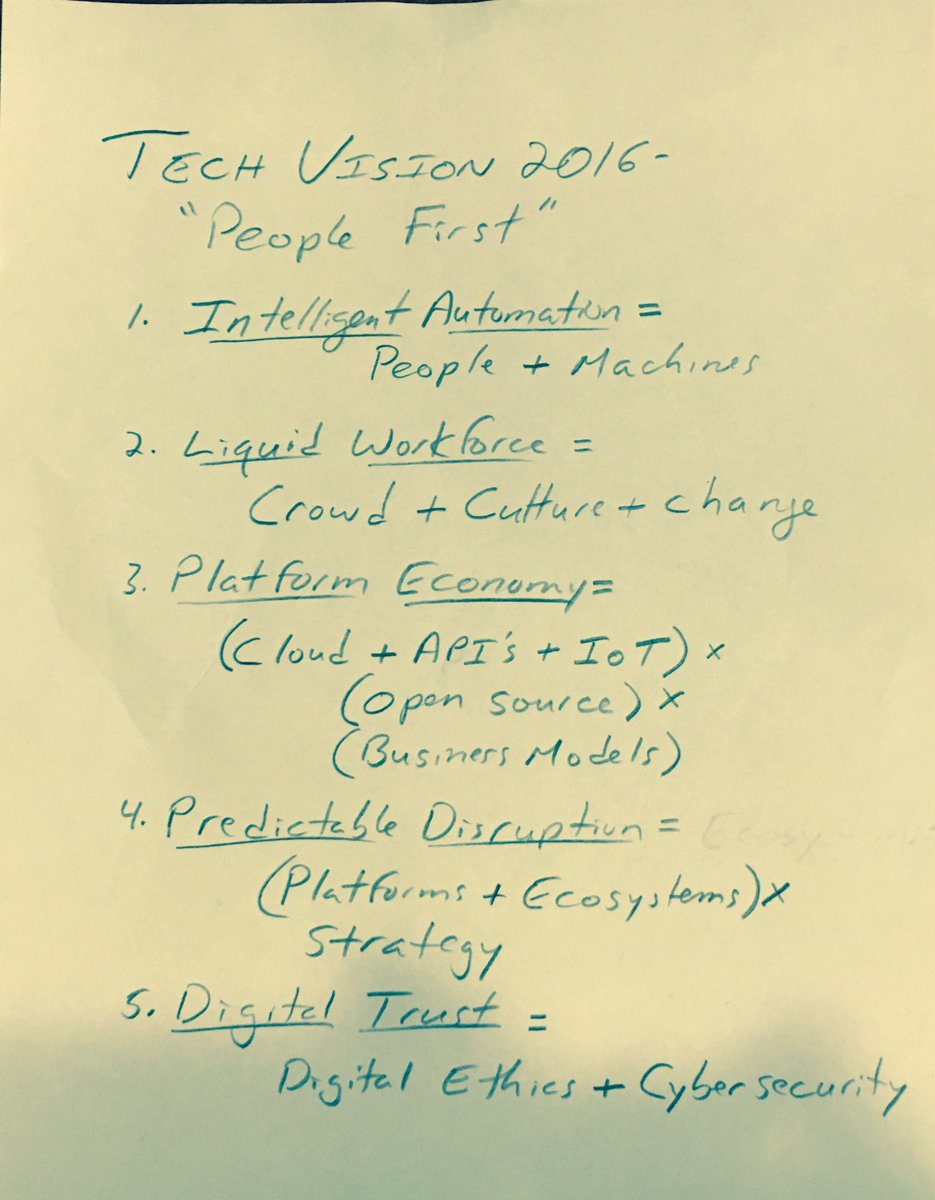 TECH VISION 2016-
"People First"
1. Intelligent Automation =
People + Machines
2. Liquid Workforce =
Crowd + Culture + change
3. Platform Economy=
(Cloud + API's + IoT) x
(Open source) x
(Business Models)
4. Predictable Disruption =
(Platforms + Ecosystems) x
Strategy
5. Digital Trust =
Digital Ethics + Cybersecurity